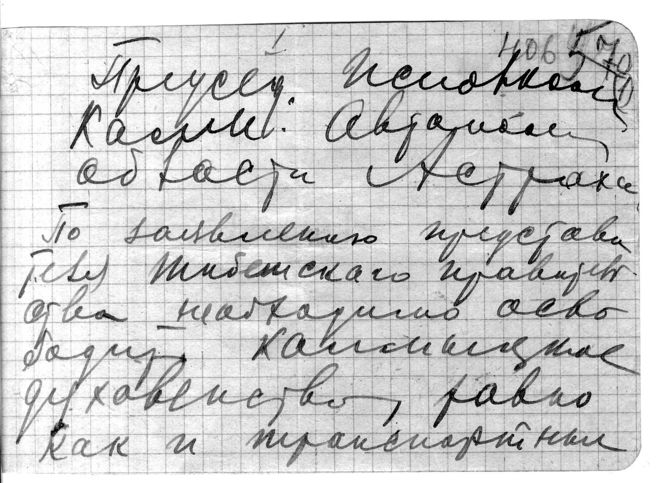 406 570
Председ. Исполкома
Калм. Автоном
области Астраха
По заявлению представи
теля Тибетского правитель
ства необходимо осво
бодить калмыцкое
духовенство, равно
как и транспортные